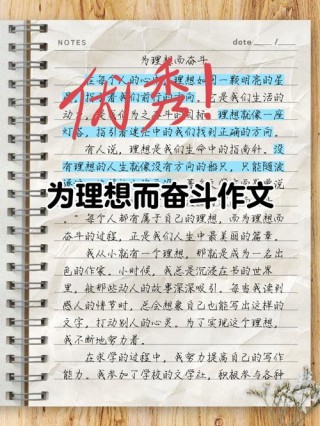 NOTES
date
为理想而奋斗
在每个人的心中,理想如同一颗明亮的星
它是我们生活的动
理想就像一座
灯塔,指引着迷茫中的我们找到正确的方向。
有人说,理想是我们生命中的指南针,没
有理想的人生就像没有方向的船只,只能随波
优秀!
为理想而奋斗作文
。"每个人都有属于自己的理想,而为理想而
奋斗的过程,正是我们人生中最美丽的篇章。
我从小就有一个理想,那就是成为一名出
色的作家。小时候,我总是沉浸在书的世界
里,被那些动人的故事深深吸引。每当我读到
感人的情节时,总会想象自己也能写出这样的
文字,打动别人的心灵。为了实现这个理想,
我不断地努力着。
在求学的过程中,我努力提高自己的写作
能力。我参加了学校的文学社,积极参与各种